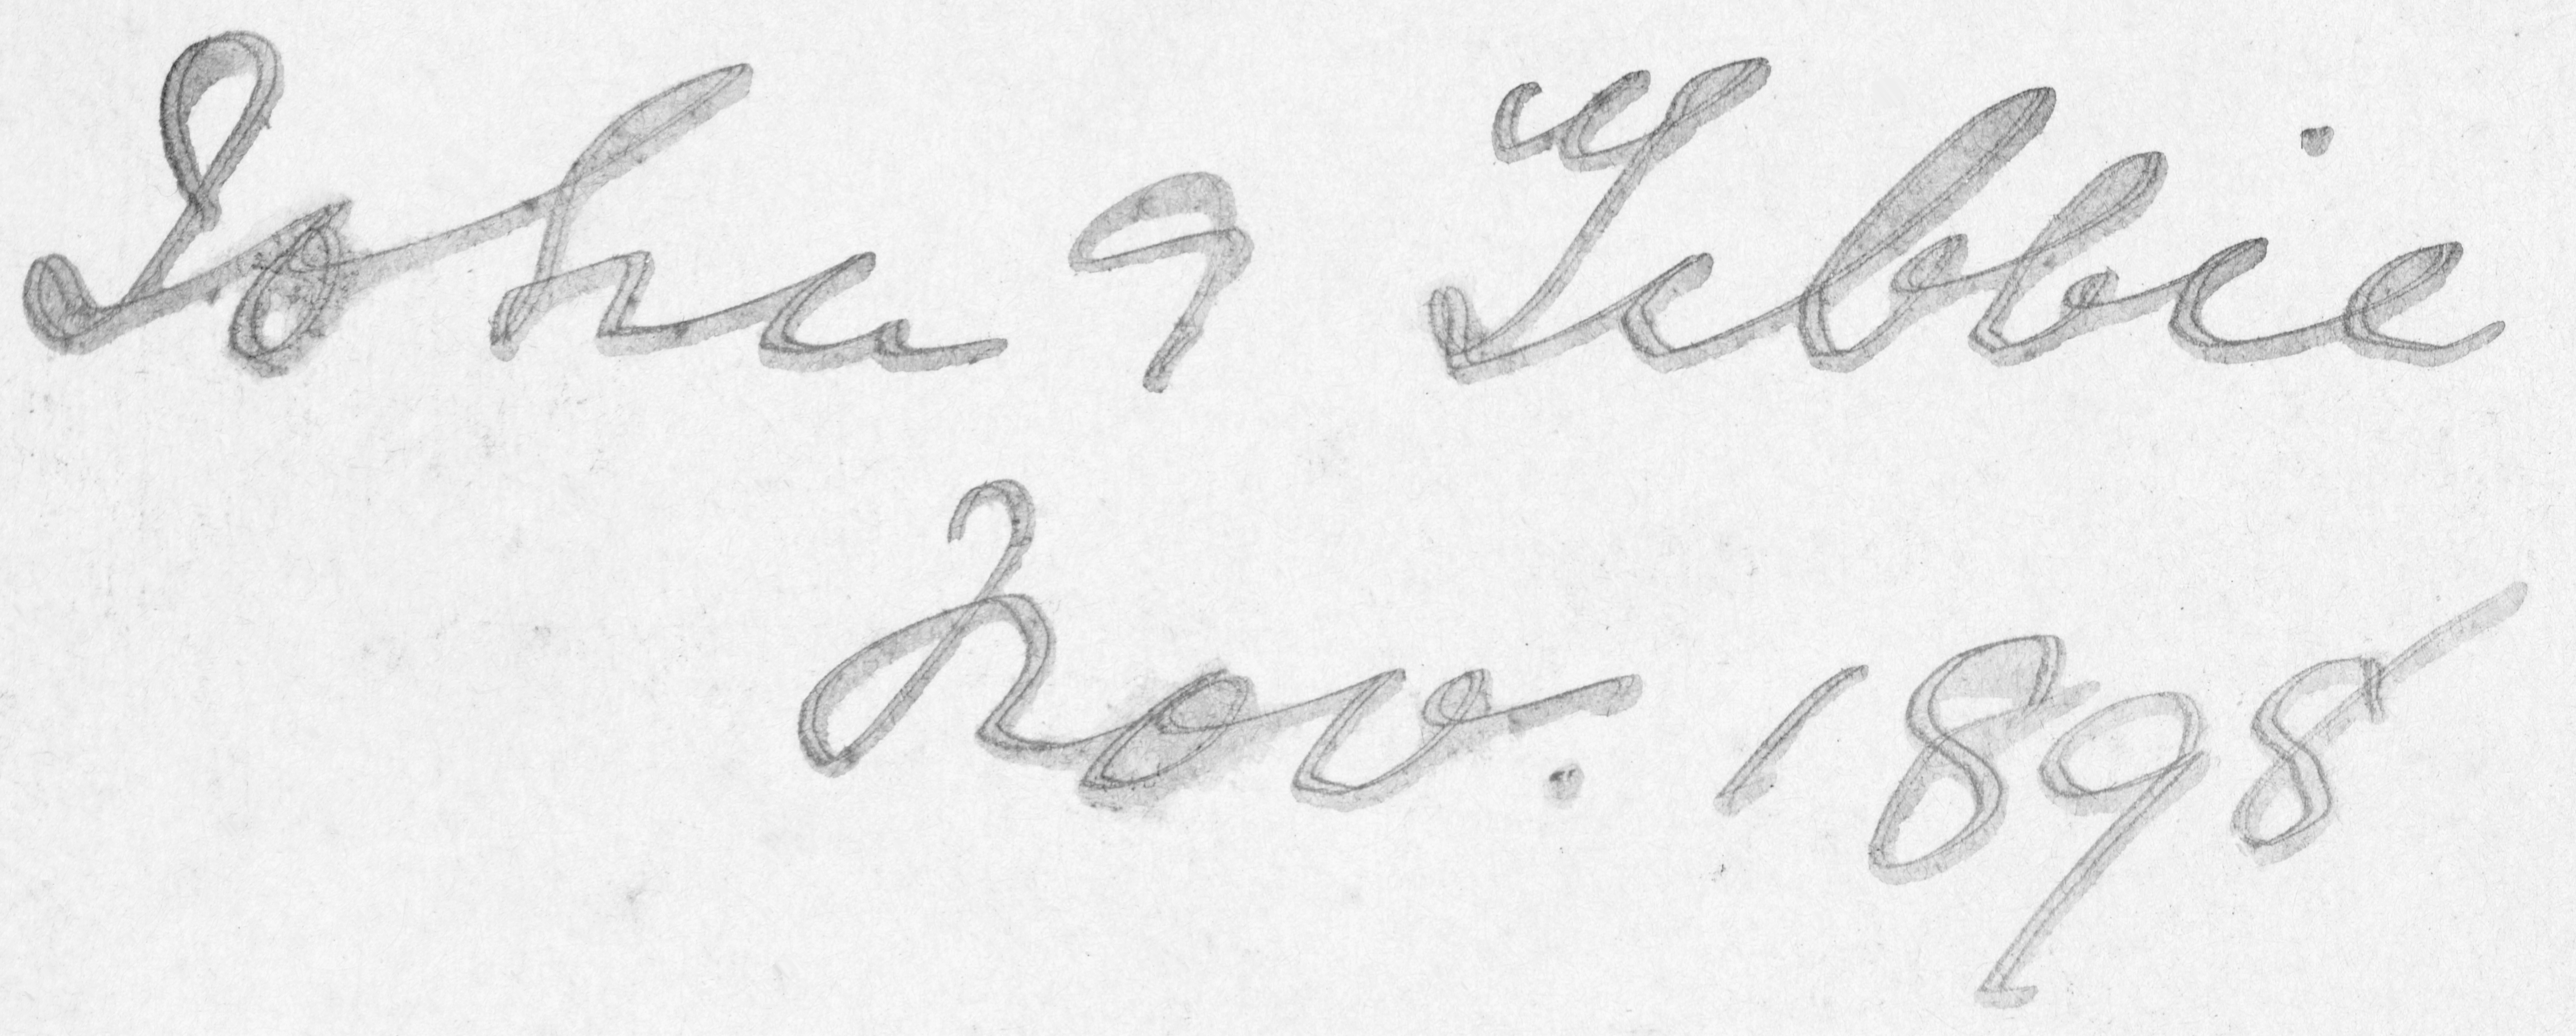 John & Tibbie
Nov. 1898